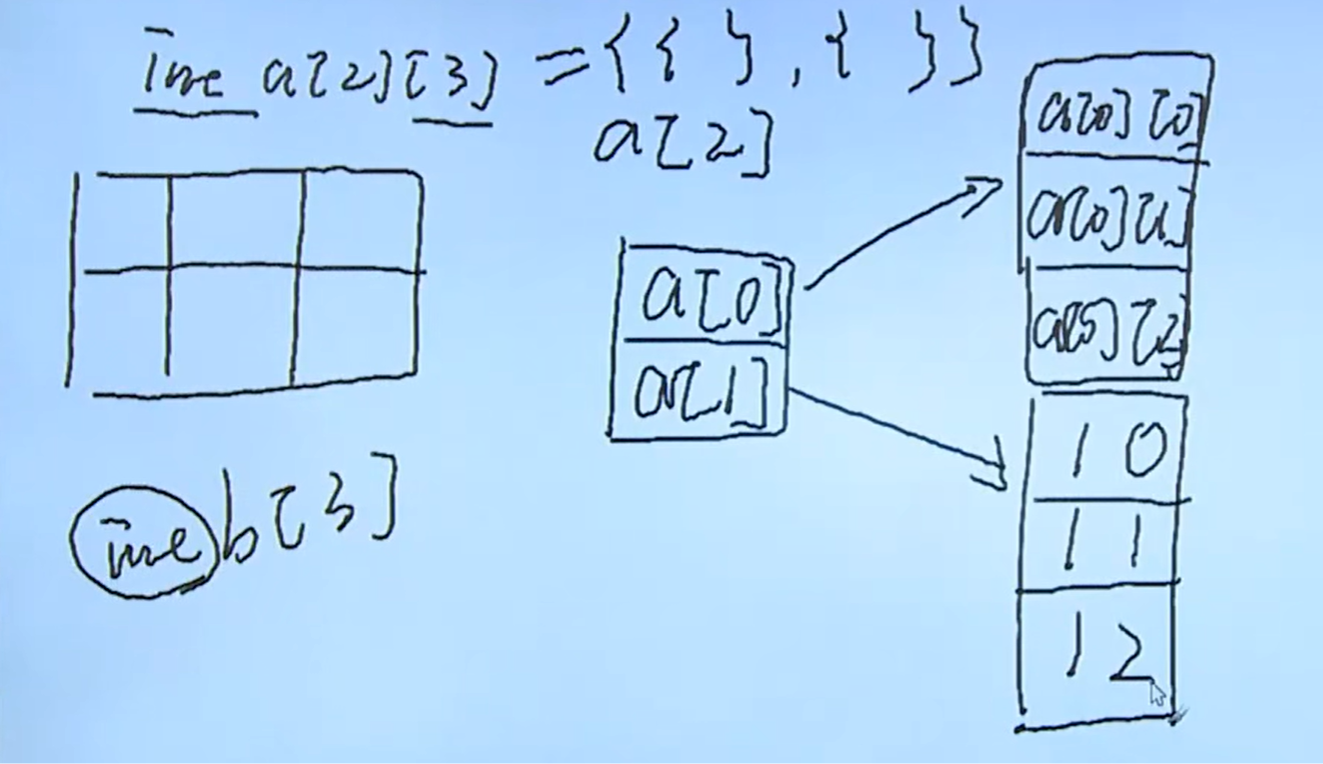 int a[2][3] = {{ }, { }}
a[2]
a[0][0]
a[0][1]
a[0][2]
a[0]
a[1]
1 0
1 1
1 2
int b[3]